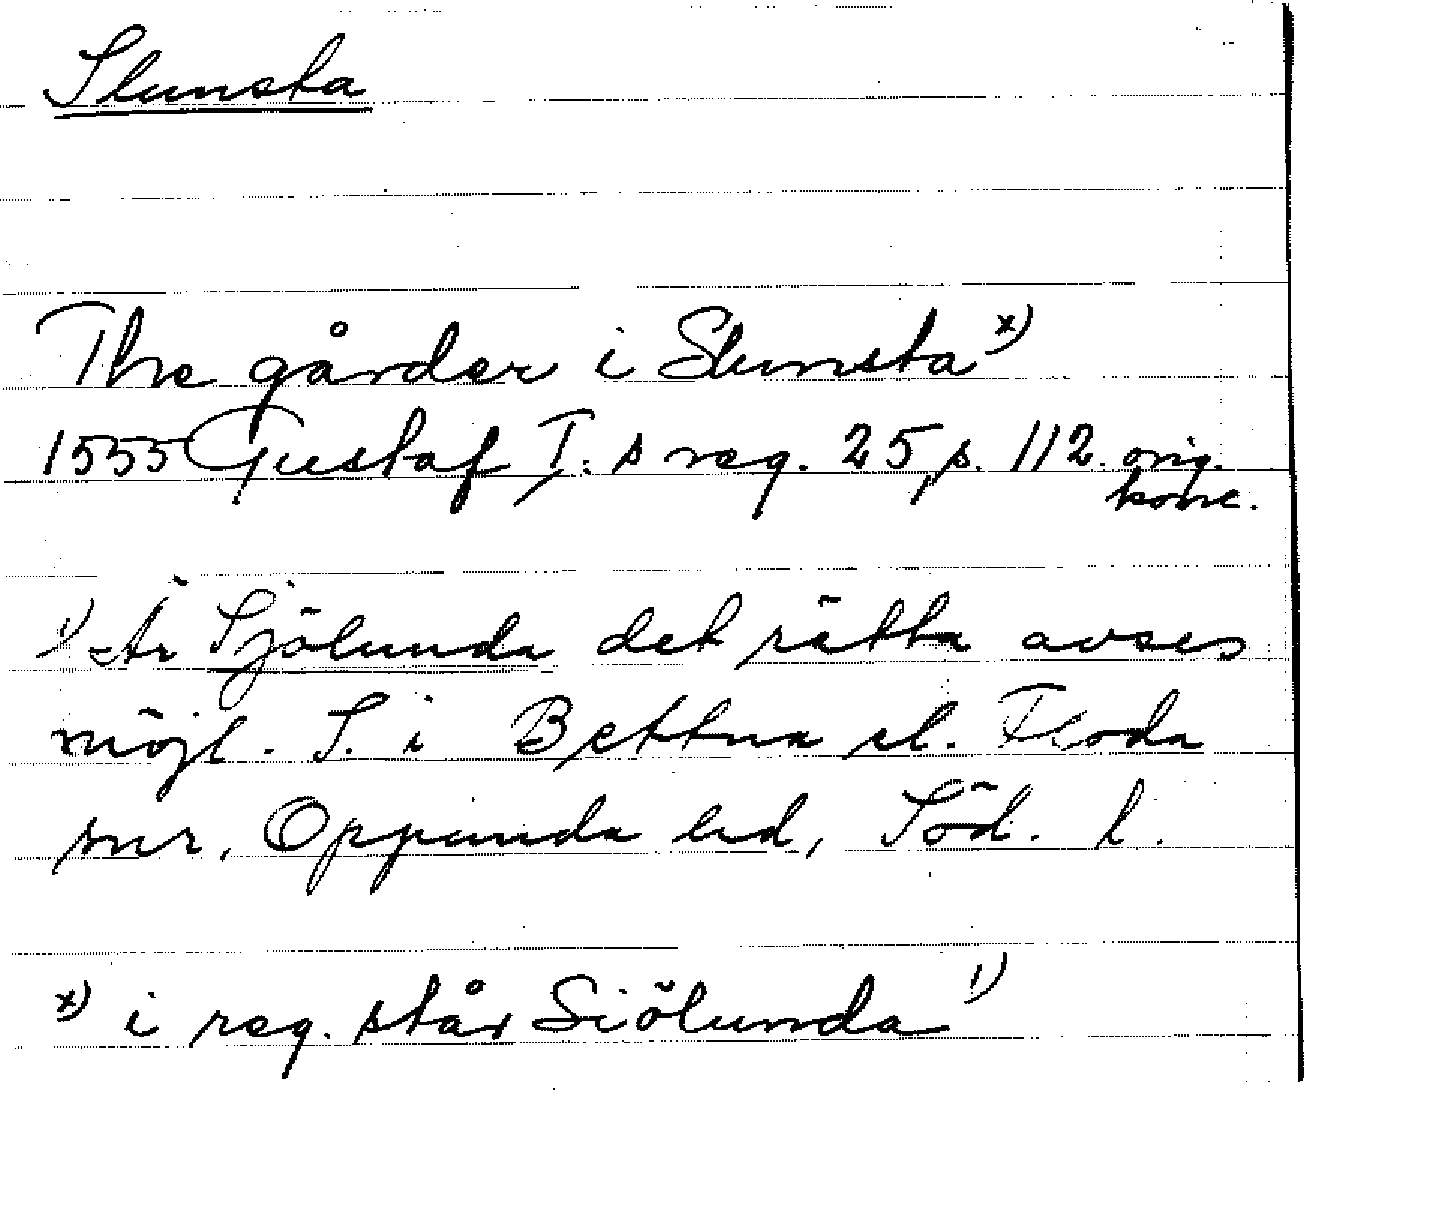 Slunsta
Thre gårder i Slunsta x)
1555 Gustaf I:s reg. 25, s. 112. orig.
konc.
1) Är Sjölunda det rätta avses
möjl. S. i Bettna el. Floda
snr, Oppunda hd, Söd. l.
x) i reg. står Siölunda 1)